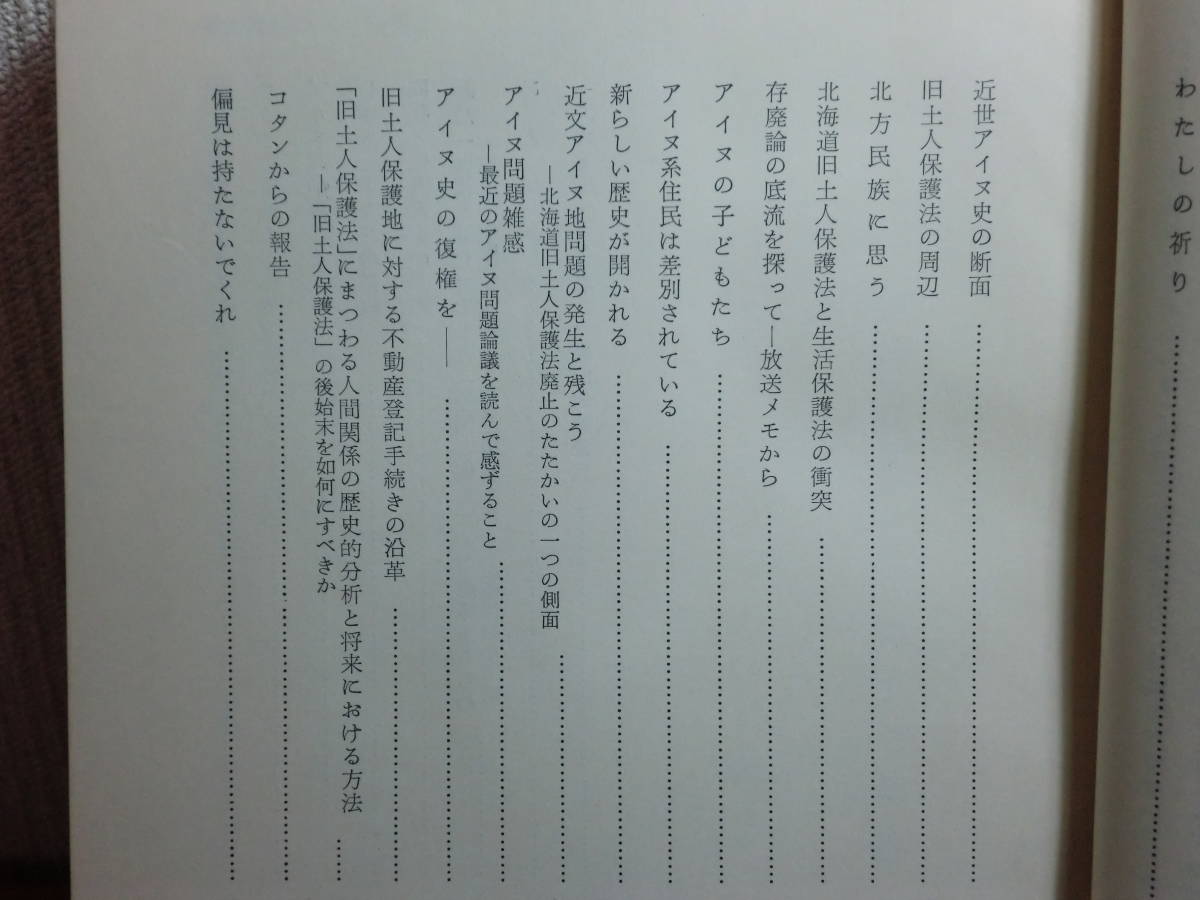 わたしの祈り……………………
近世アイヌ史の断面……………………
旧土人保護法の周辺……………………
北方民族に思う……………………
北海道旧土人保護法と生活保護法の衝突……………………
存廃論の底流を探って―放送メモから……………………
アイヌの子どもたち……………………
アイヌ系住民は差別されている……………………
新らしい歴史が開かれる……………………
近文アイヌ地問題の発生と残こう
―北海道旧土人保護法廃止のたたかいの一つの側面……………………
アイヌ問題雑感
―最近のアイヌ問題論議を読んで感ずること……………………
アイヌ史の復権を――……………………
旧土人保護地に対する不動産登記手続きの沿革……………………
「旧土人保護法」にまつわる人間関係の歴史的分析と将来における方法……
―「旧土人保護法」の後始末を如何にすべきか
コタンからの報告……………………
偏見は持たないでくれ……………………